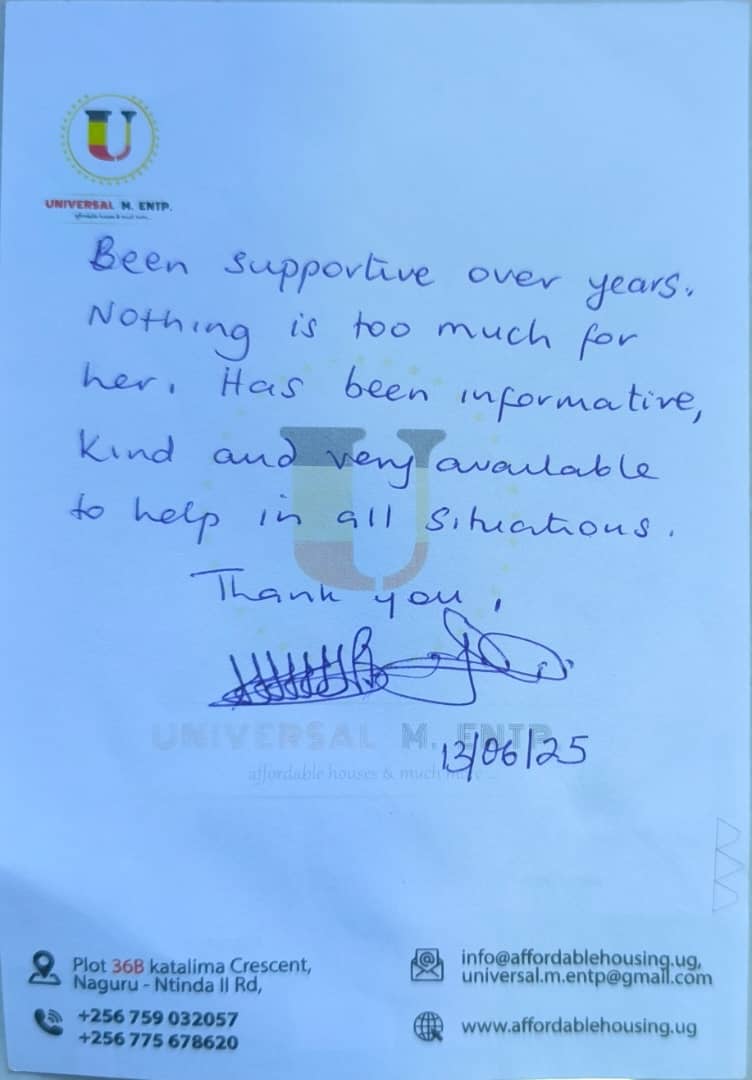 U
UNIVERSAL M. ENTP.
affordable houses & much more...
Been supportive over years.
Nothing is too much for
her. Has been informative,
Kind and very available
to help in all situations.
Thank you,
UNIVERSAL M. ENTP.
affordable houses & much more...
13/06/25
Plot 36B katalima Crescent,
Naguru - Ntinda II Rd,
+256 759 032057
+256 775 678620
info@affordablehousing.ug,
universal.m.entp@gmail.com
www.affordablehousing.ug